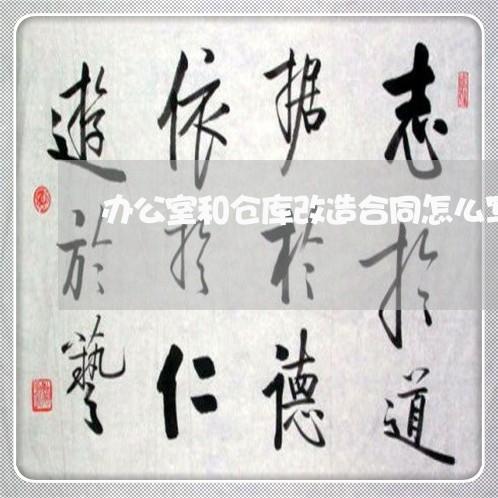 志於道
据於德
依於仁
遊於藝
办公室和仓库改造合同怎么